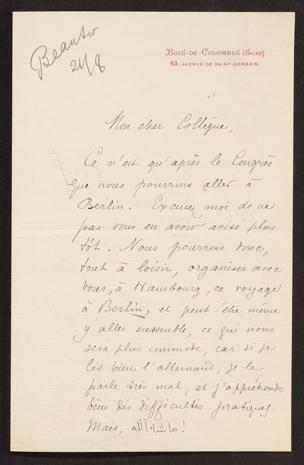 Beantw
21/8
BOIS-DE-COLOMBES (Seine)
93, AVENUE DE SAINT-GERMAIN
Mon cher Collègue,
Ce n'est qu'après le Congrès
que nous pourrons aller à
Berlin. Excusez moi de ne
pas vous en avoir avisé plus
tôt. Nous pourrons donc,
tout à loisir, organiser avec
vous, à Hambourg, ce voyage
à Berlin, et peut-être même
y aller ensemble, ce qui nous
sera plus commode, car si je
lis bien l'allemand, je le
parle très mal, et j'appréhende
bien des difficultés pratiques.
Mais, ماشاءالله !